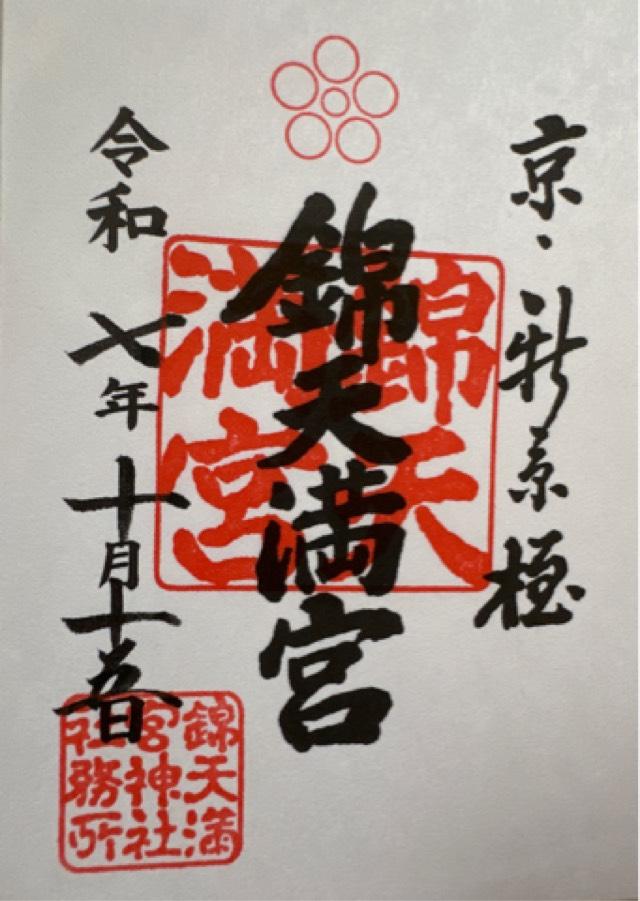 京・新京極
錦天満宮
錦天
満宮
令和七年十月十五日
錦天満
宮神社
社務所